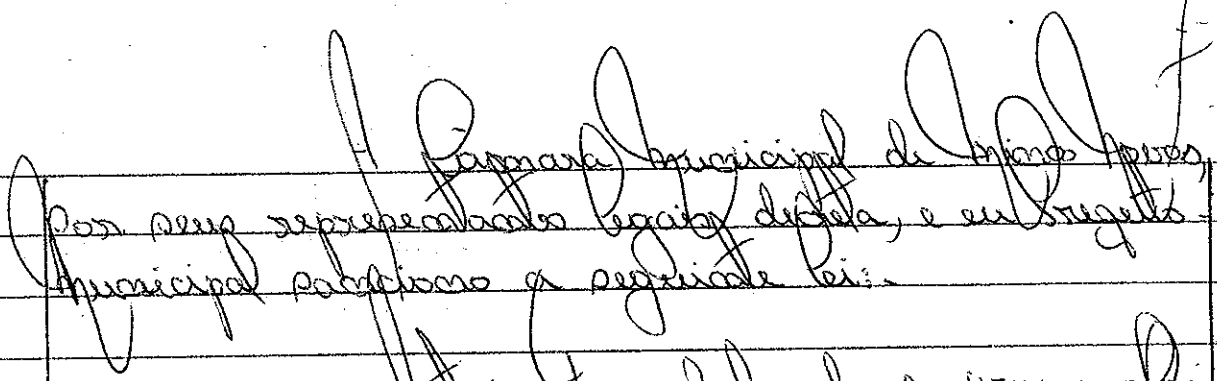 A Câmara Municipal de Minas Novas,
por seus representantes legais decreta, e eu Prefeito
Municipal sanciono a seguinte lei:-